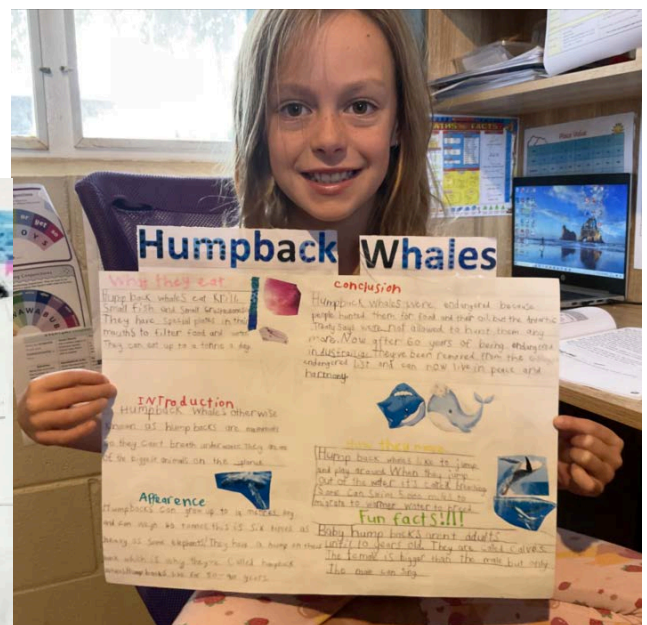 Humpback Whales
Why they eat
Hump back whales eat Krill
Small fish and Small
They have special plates in their
mouths to filter food and water
They can eat up to a tonne a day
INtroduction
Humpback Whales otherwise
known as humpbacks are mammals
so they can't breath underwater They are one
of the biggest animals on the planet
Appearence
Humpbacks can grow up to 19 metres long
and can weigh 40 tonnes this is six times as
heavy as Some elephants! They have a hump on there
back which is why they're called humpback
whales Humpbacks live for 80-90 years
conclusion
Humpback Whales were endangered because
people hunted them for food and their oil but the
These days were not allowed to hunt them any
more. Now after 60 years of being endangered
in australia they've been removed from the
endangered list and can now live in peace and
harmony
How they move
Hump back whales like to jump
and play around When they jump
out of the water it's called breaching
Some can Swim 5,000 miles to
migrate to warmer water to breed
Fun facts!!!
Baby hump back's aren't adults
until 10 years old. They are called calves
The female is bigger than the male but only
The male can Sing
MATHS FACTS
Place Value